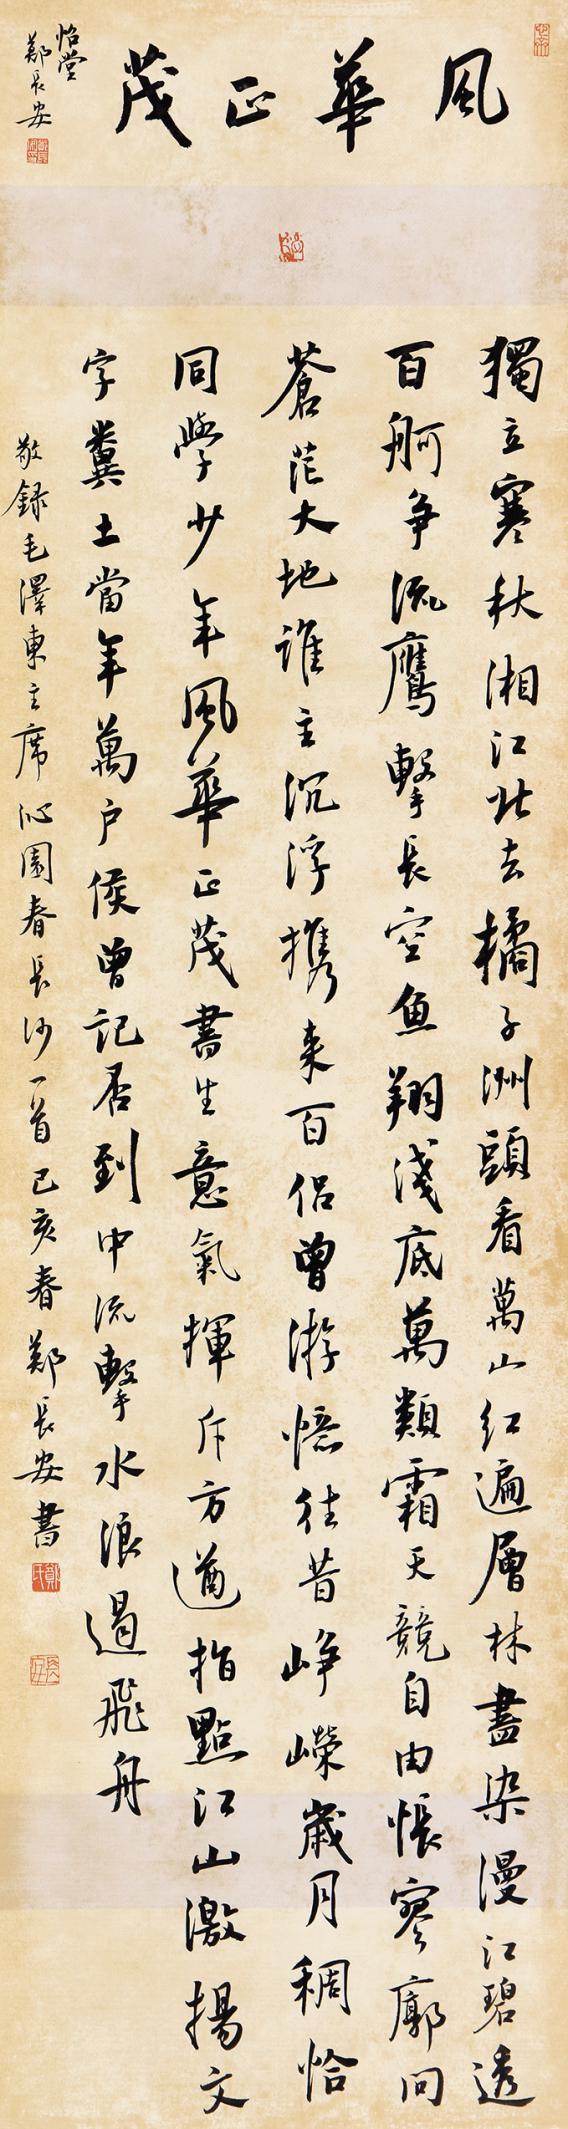 風華正茂
怡堂
鄭長安
獨立寒秋湘江北去橘子洲頭看萬山紅遍層林盡染漫江碧透
百舸争流鷹擊長空魚翔淺底萬類霜天競自由悵寥廓問
蒼茫大地誰主沉浮攜來百侣曾游憶往昔崢嶸歲月稠恰
同學少年風華正茂書生意氣揮斥方遒指點江山激揚文
字糞土當年萬户侯曾記否到中流擊水浪遏飛舟
敬録毛澤東主席沁園春長沙一首己亥春鄭長安書